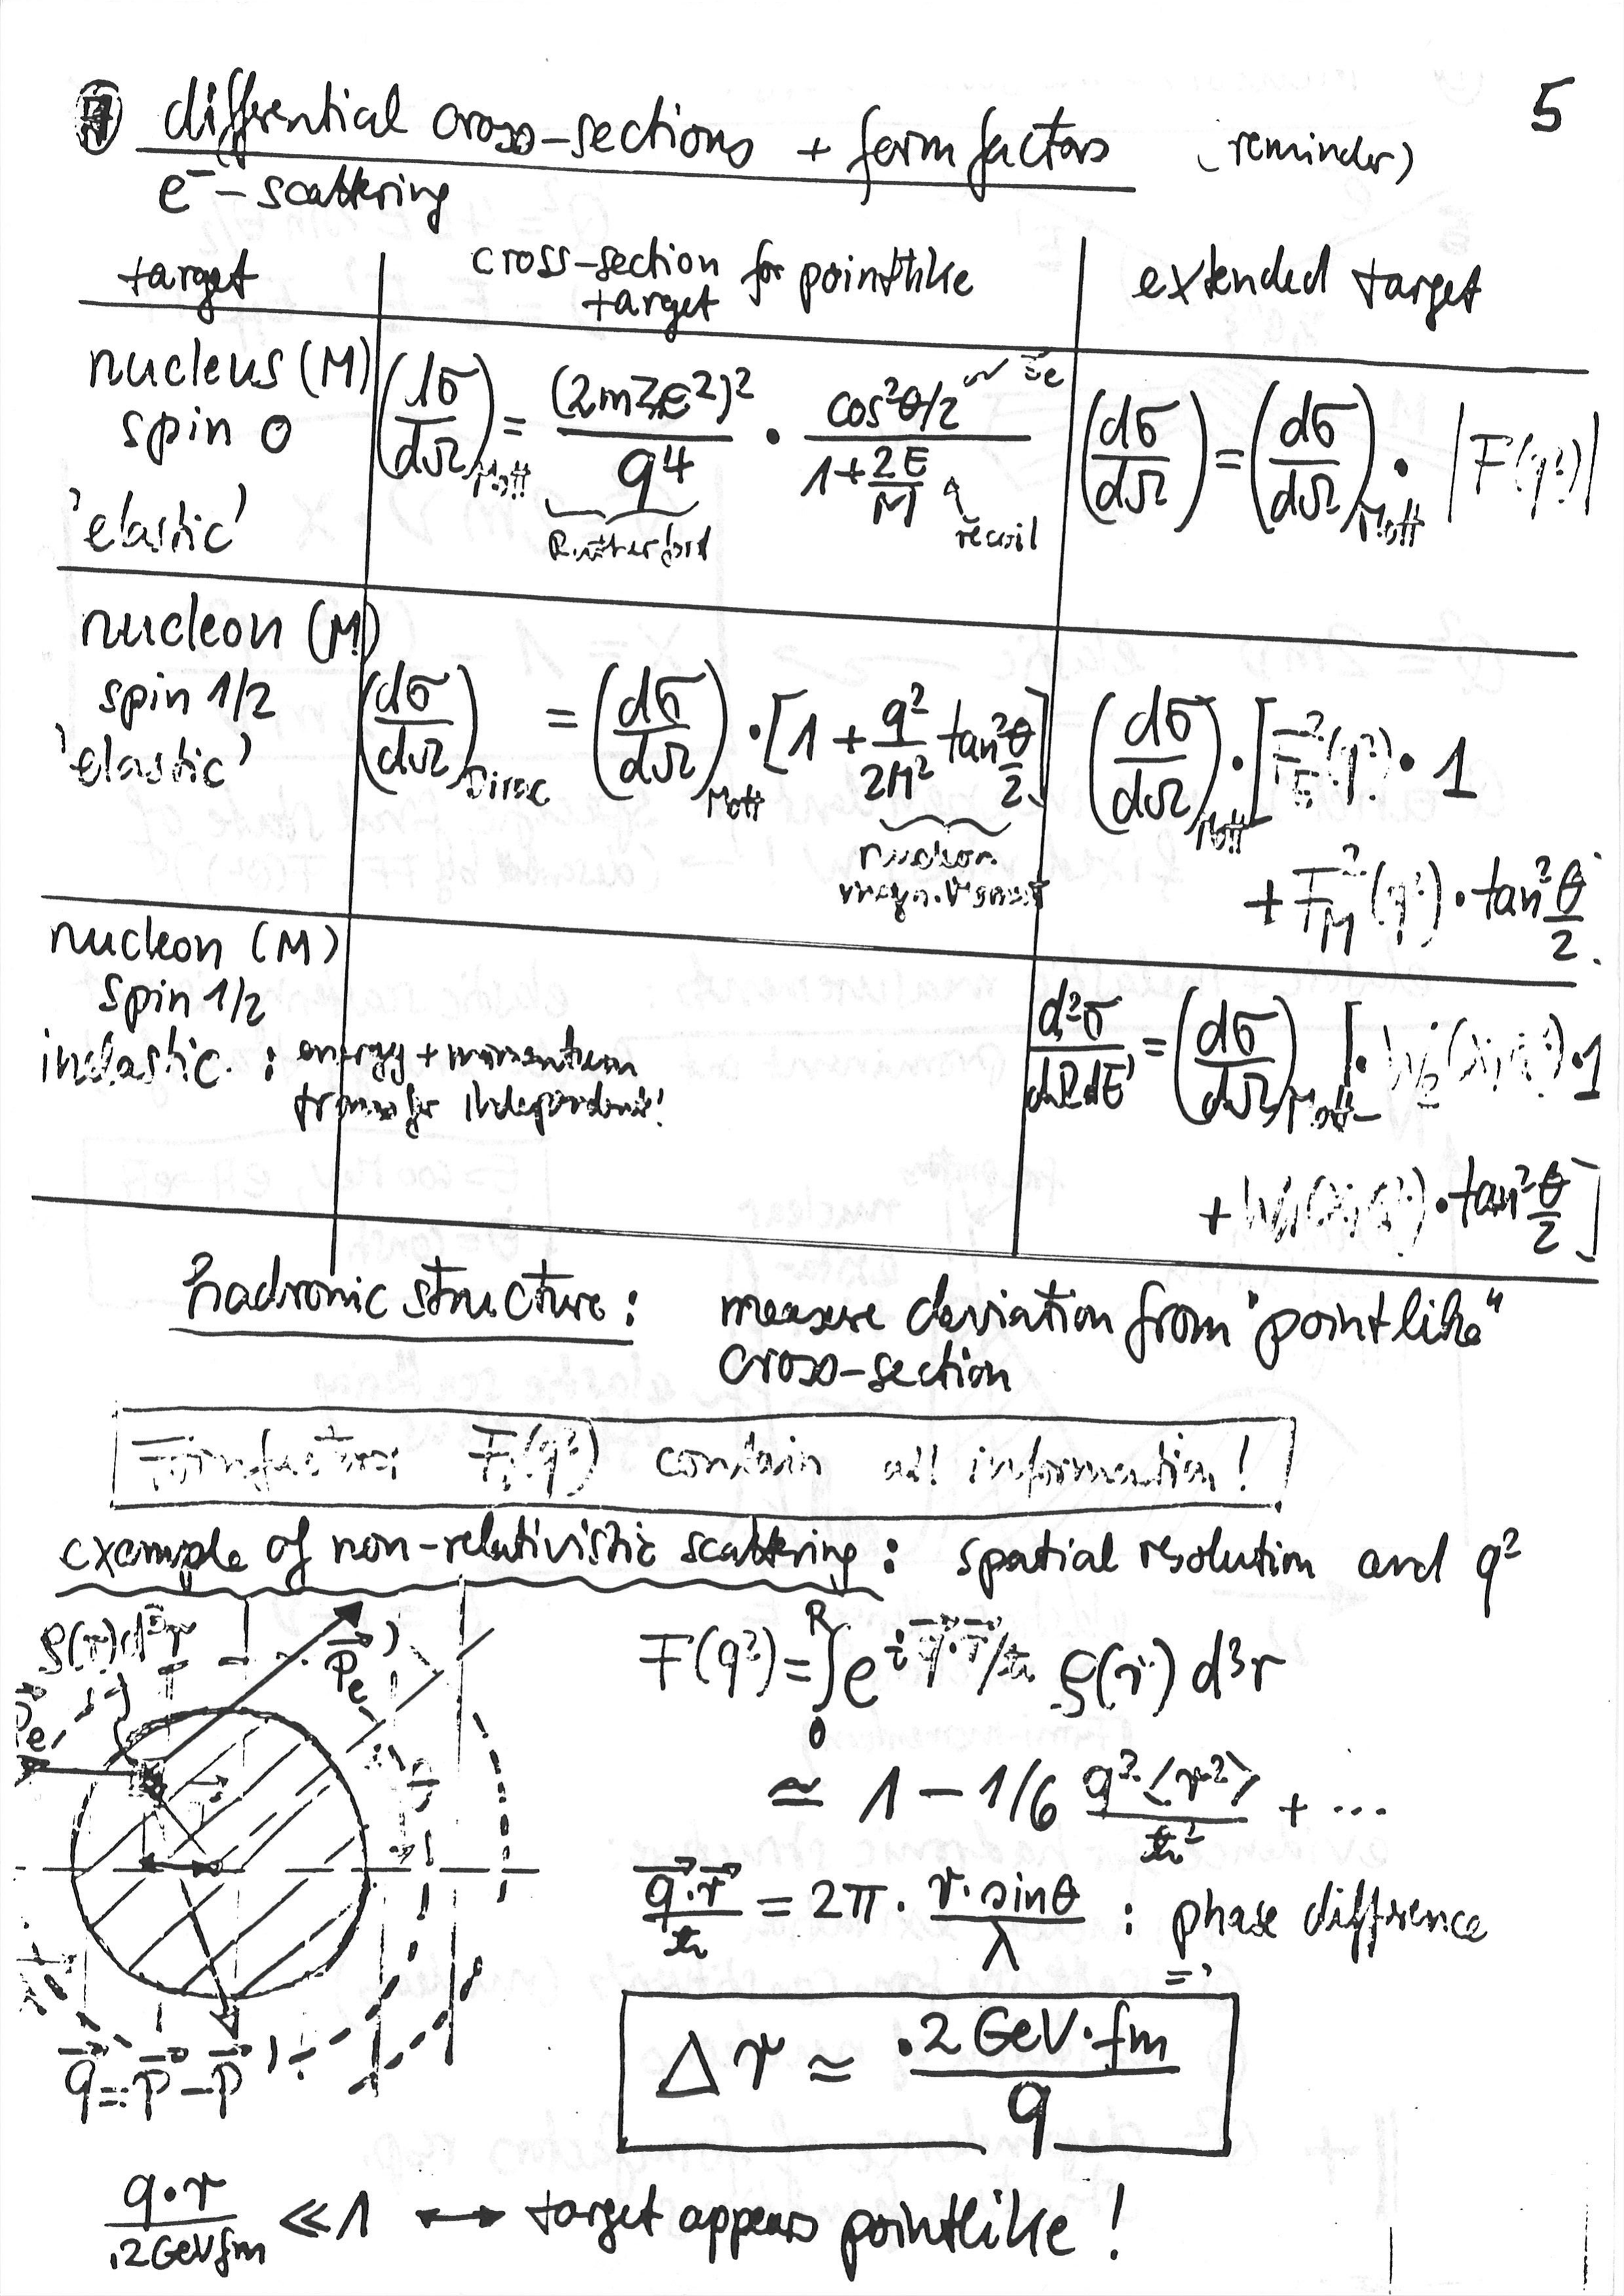 differential cross-sections + form factors (reminder) 5
e⁻-scattering
target
cross-section for pointlike target
extended target
nucleus (M)
spin 0
'elastic'
(dσ/dΩ)Mott = (2mZe²)²/q⁴ · cos²θ/2 / (1+2E/M
Rutherford
recoil
(dσ/dΩ) = (dσ/dΩ)Mott · |F(q²)|
nucleon (M)
spin 1/2
'elastic'
(dσ/dΩ)Dirac = (dσ/dΩ)Mott · [1 + q²/2M² tan²θ/2]
nucleon
magn. Moment
(dσ/dΩ)Mott · [F²E(q²) · 1
+ F²M(q²) · tan²θ/2
nucleon (M)
spin 1/2
inelastic : energy + momentum
transfer independent!
d²σ/dΩdE' = (dσ/dΩ)Mott [· W₂( · 1
+ W₁( · tan²θ/2]
hadronic structure: measure deviation from "pointlike"
cross-section
Formfactors F(q²) contain all information!
example of non-relativistic scattering: spatial resolution and q²
ρ(r)d³r
Pe'
Pe
F(q²) = ∫₀ᴿ e^(i q⃗·r⃗/ħ) ρ(r) d³r
≃ 1 - 1/6 q²·<r²>/ħ² + ...
q⃗·r⃗/ħ = 2π · r·sinθ/λ : phase difference
q⃗ = p⃗ - p⃗'
Δr ≃ .2 GeV·fm/q
q·r/.2GeVfm ≪ 1 ↔ target appears pointlike!